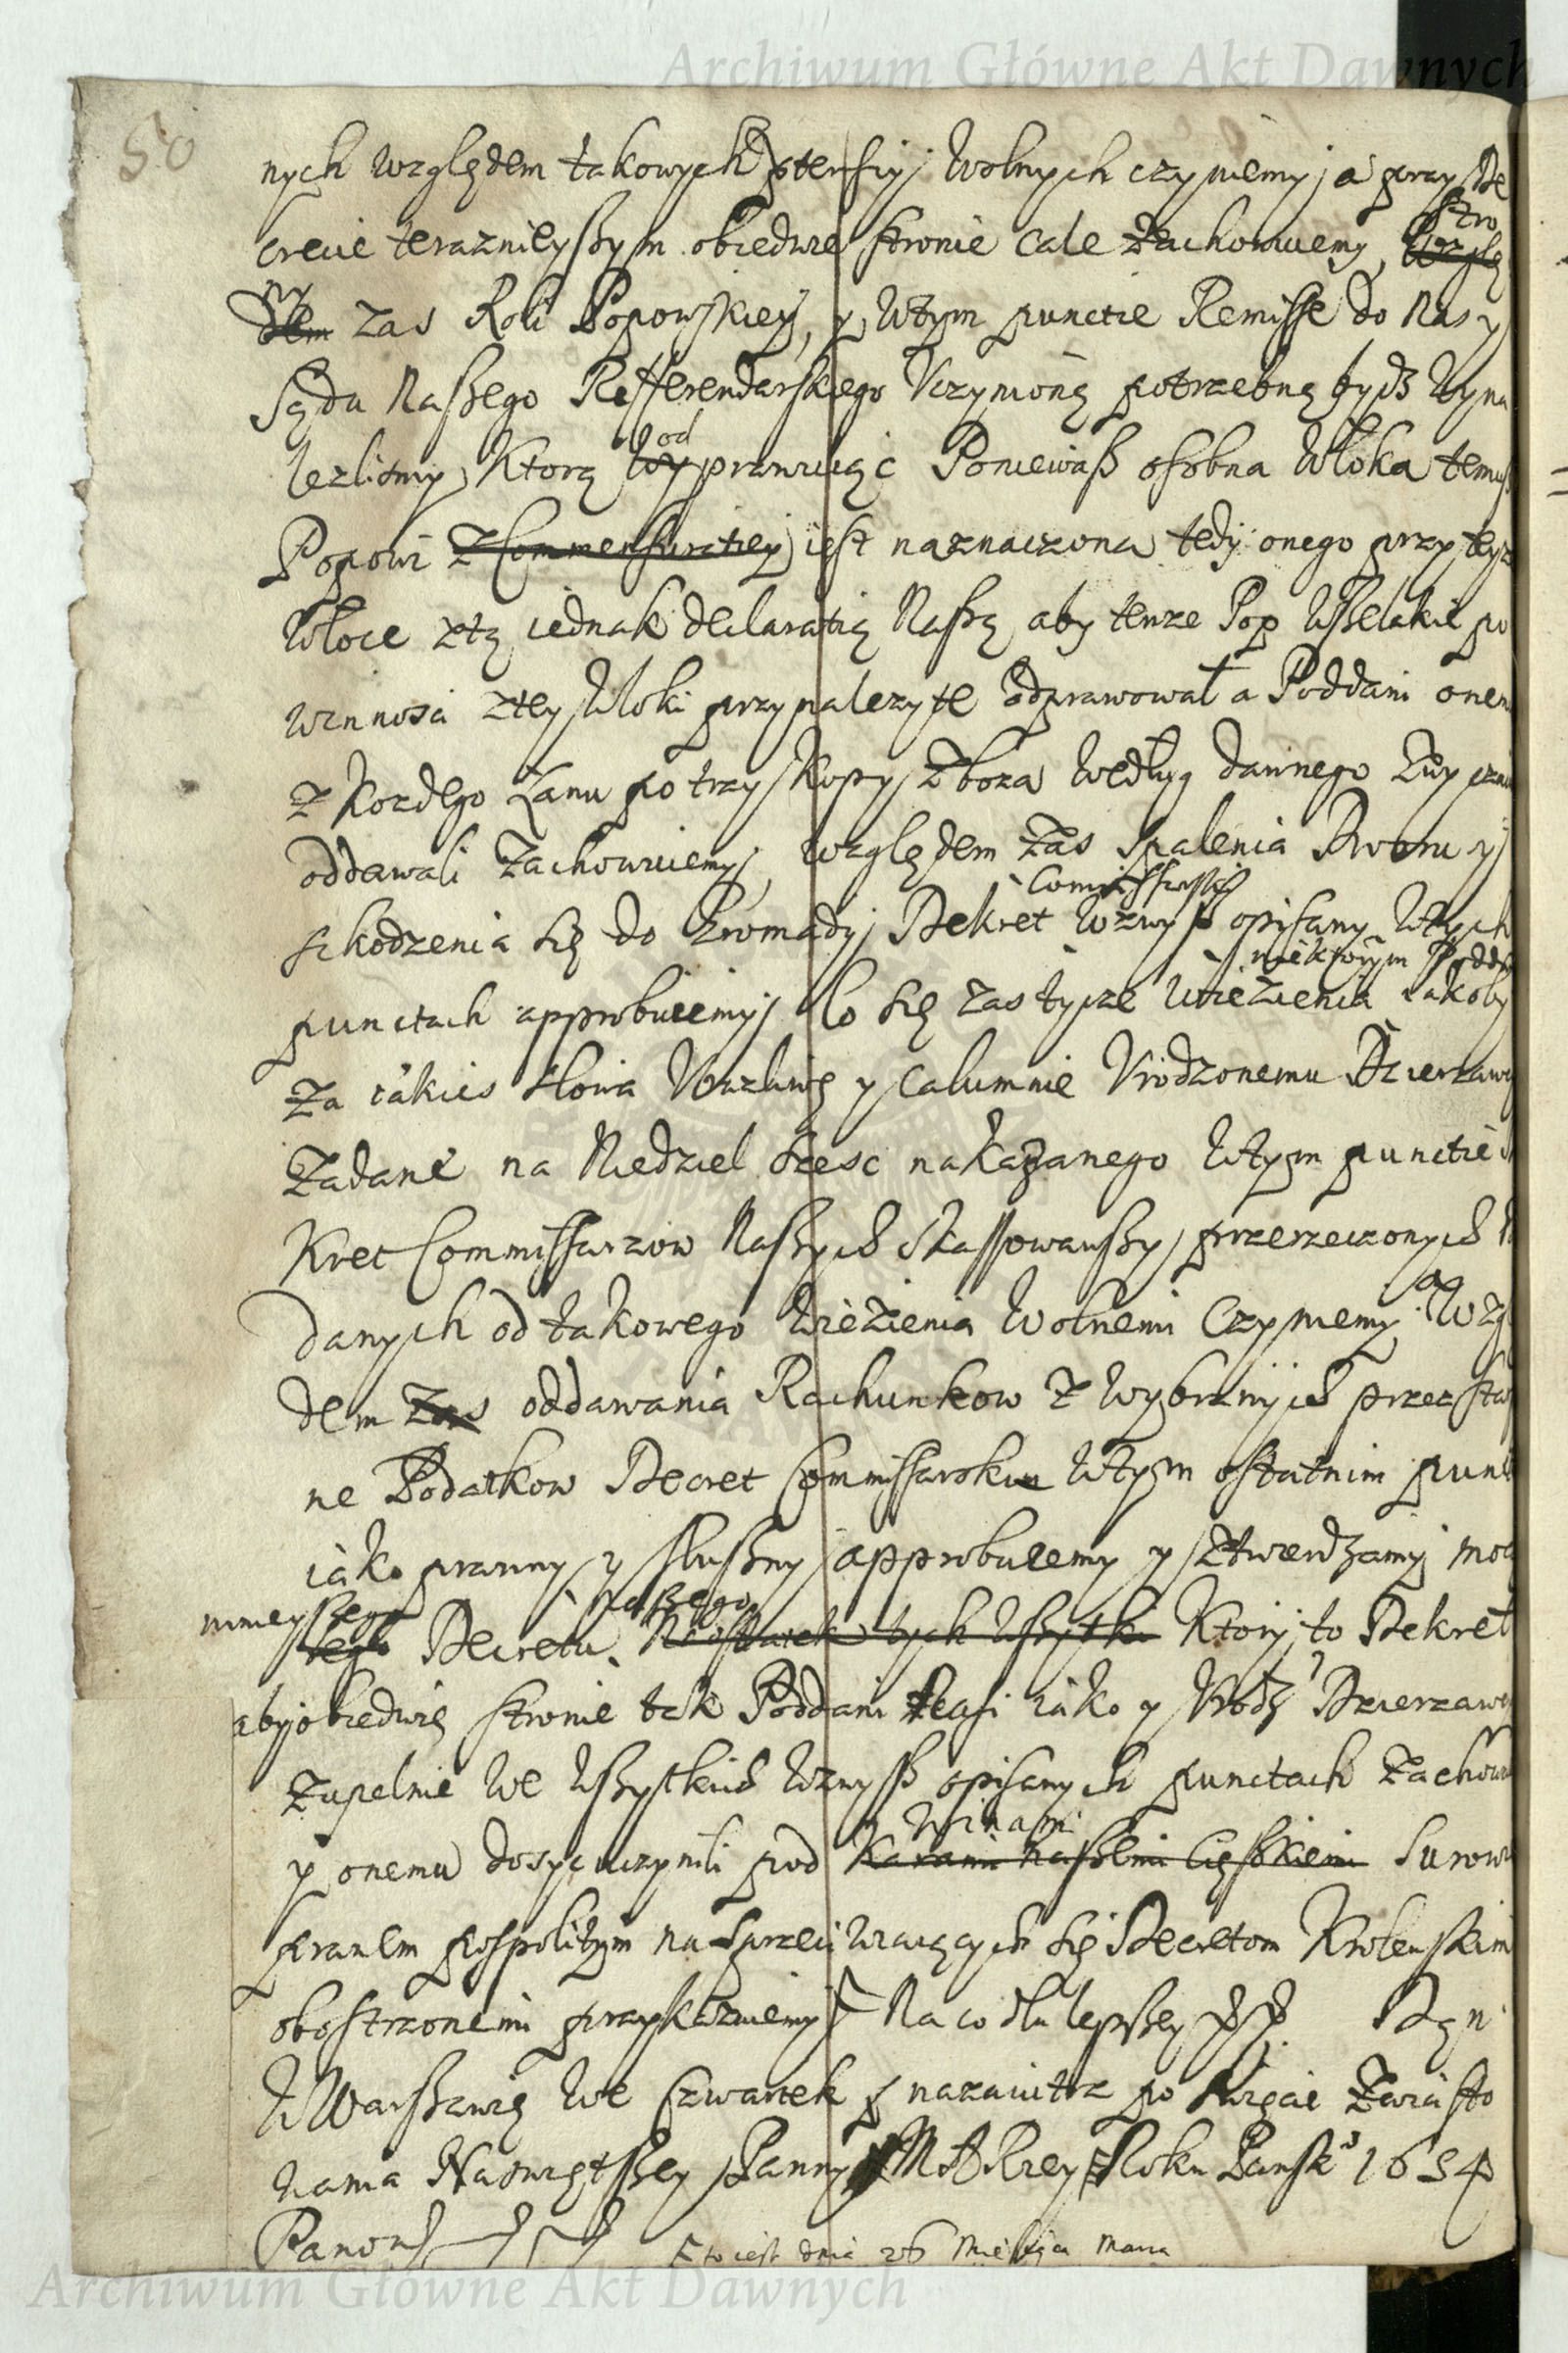 Archiwum Główne Akt Dawnych
50
nych względem takowych ptensiy wolnych czyniemy, a przy De
crecie teraznieyßym obiedwie stronie cale zachowuemy, Wzglę
Stro
dem zas Roli Popowskiey, y wtym punctie Remisse do Nas y
ny
Sądu Naßego Refferendarskiego Vczynioną potrzebną bydz wyna
lezlismy, Ktorą wyprawuiąc Poniewaß osobna Włoka temuß
od
Popowi z Commensuratiey iest naznaczona tedy onego przy teyze
Włoce ztą iednak declaratią Naßą aby tenze Pop wßelakie po
winnosci ztey Włoki przynalezyte odprawował a Poddani onemu
z kozdego Łanu po trzy Kopy Zboza według dawnego Zwyczaiu
oddawali zachowuiemy, względem zas spalenia Browaru y
szkodzenia się do Gromady Dekret wzwyß opisany wtych
Commissarski
punctach approbuiemy, Co się zas tycze wiezienia iakoby
niektorym Podda
za iakies słowa Vrazliwe y calumnie Vrodzonemu Dzierzawcy
Zadane na Niedziel szesc nakazanego wtym punctie
Kret Commissarzow Naßych skassowawßy, przerzeczonych
danych od takowego wiezienia wolnemi Czyniemy. Wzglę
ag
dem zas oddawania Rachunkow z wybranych przez
ne Podatkow Decret Commissarski wtym ostatnim punctie
iako prawny y słußny approbuiemy y ztwierdzamy mocą
tego Decretu. Ktory to Dekret
ninieyßego
Naßego
aby obiedwie stronie tak Poddani nasi iako y Vrodz Dzierzawca
zupelnie we wßytkich wzwyß opisanych punctach zachowali
y onemu dosyc uczynili pod Karami naßemi Cięßkiemi Surowie
Winami
prawem pospolitym na sprzeciwiaiących się Decretom Krolewskim
obostrzonemi przykazuiemy. Na co dla lepßey Dan
w Warßawie we Czwartek nazaiutrz po Swięcie Zwiasto
wania Naswiętßey Panny MARiey Roku Pansk 1654
Panow
to iest dnia 26 Miesiąca Marca
Archiwum Główne Akt Dawnych